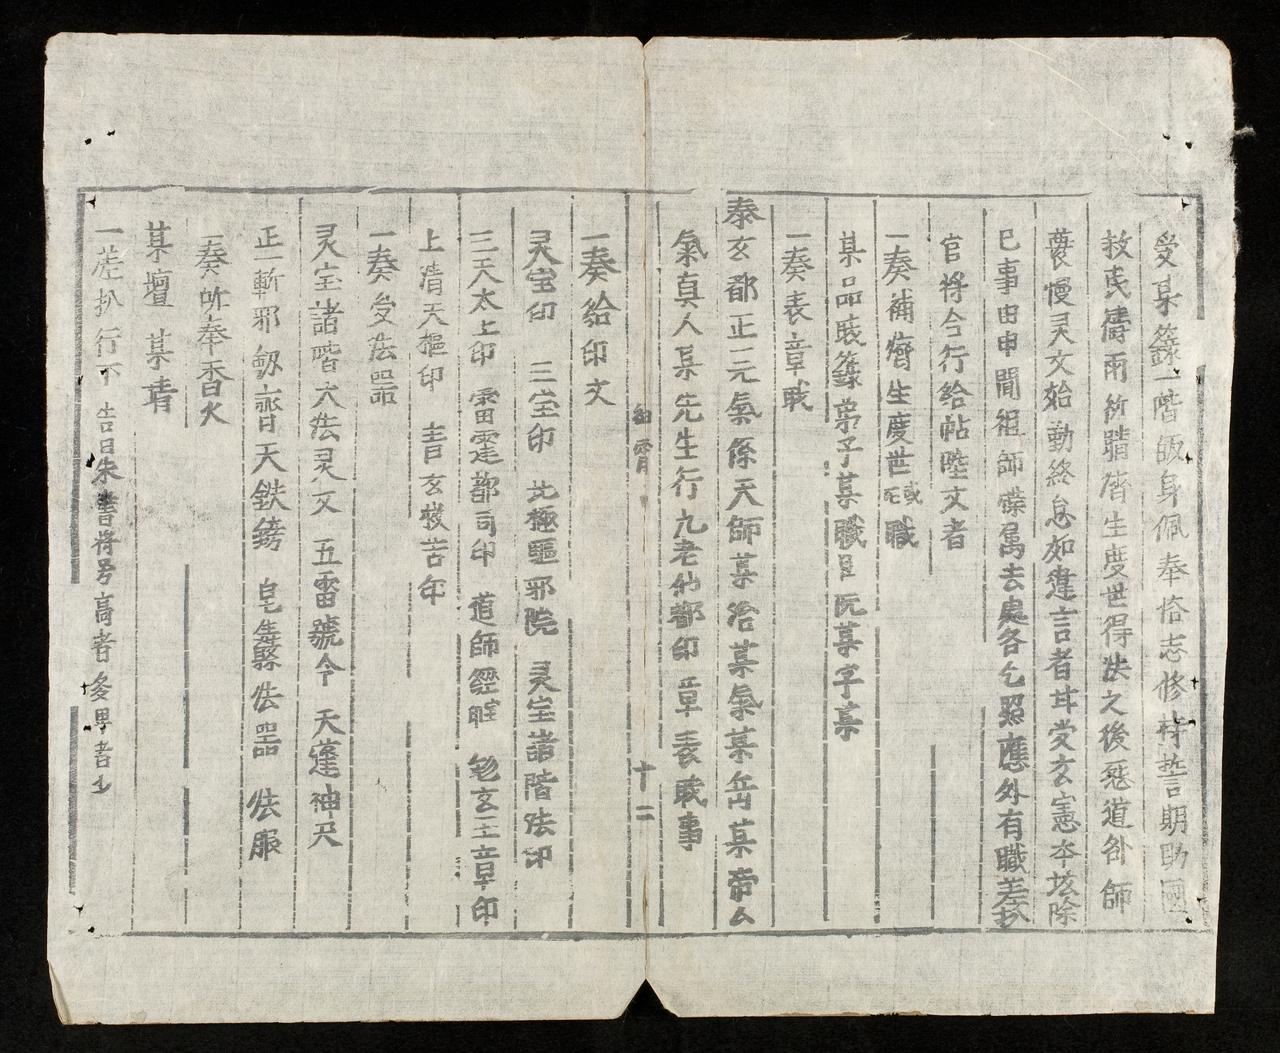 受某籙一階皈身佩奉恪志修持誓期助國
救民禱雨祈晴濟生度世得法之後惡道叛師
䙝慢灵文始勤終怠如違言者甘受玄憲本垓除
已事由申聞祖師僚属去處各乞照應外有職差扒
官將合行給帖陞文者
一奏補濟生度世或云職
某品或籙弟子某職臣阮某字某
一奏表章職
泰玄都正一元氣係天師某治某氣某岳某帝厶
氣真人某先生行九老仙都印章表職事
十二
一奏給印文
灵宝印 三宝印 北極驅邪院 灵宝諸階法印
三天太上印 雷霆都司印 道師經 玄玉章印
上清天樞印 言玄 苦年
一奏受法器
灵宝諸階六法灵文 五雷號令 天蓬神尺
正一斬邪劍 晋天鉄 皂纛法器 法服
一奏所奉香火
某壇 某靖
一差扒行下 告曰朱書將号高者多卑者少